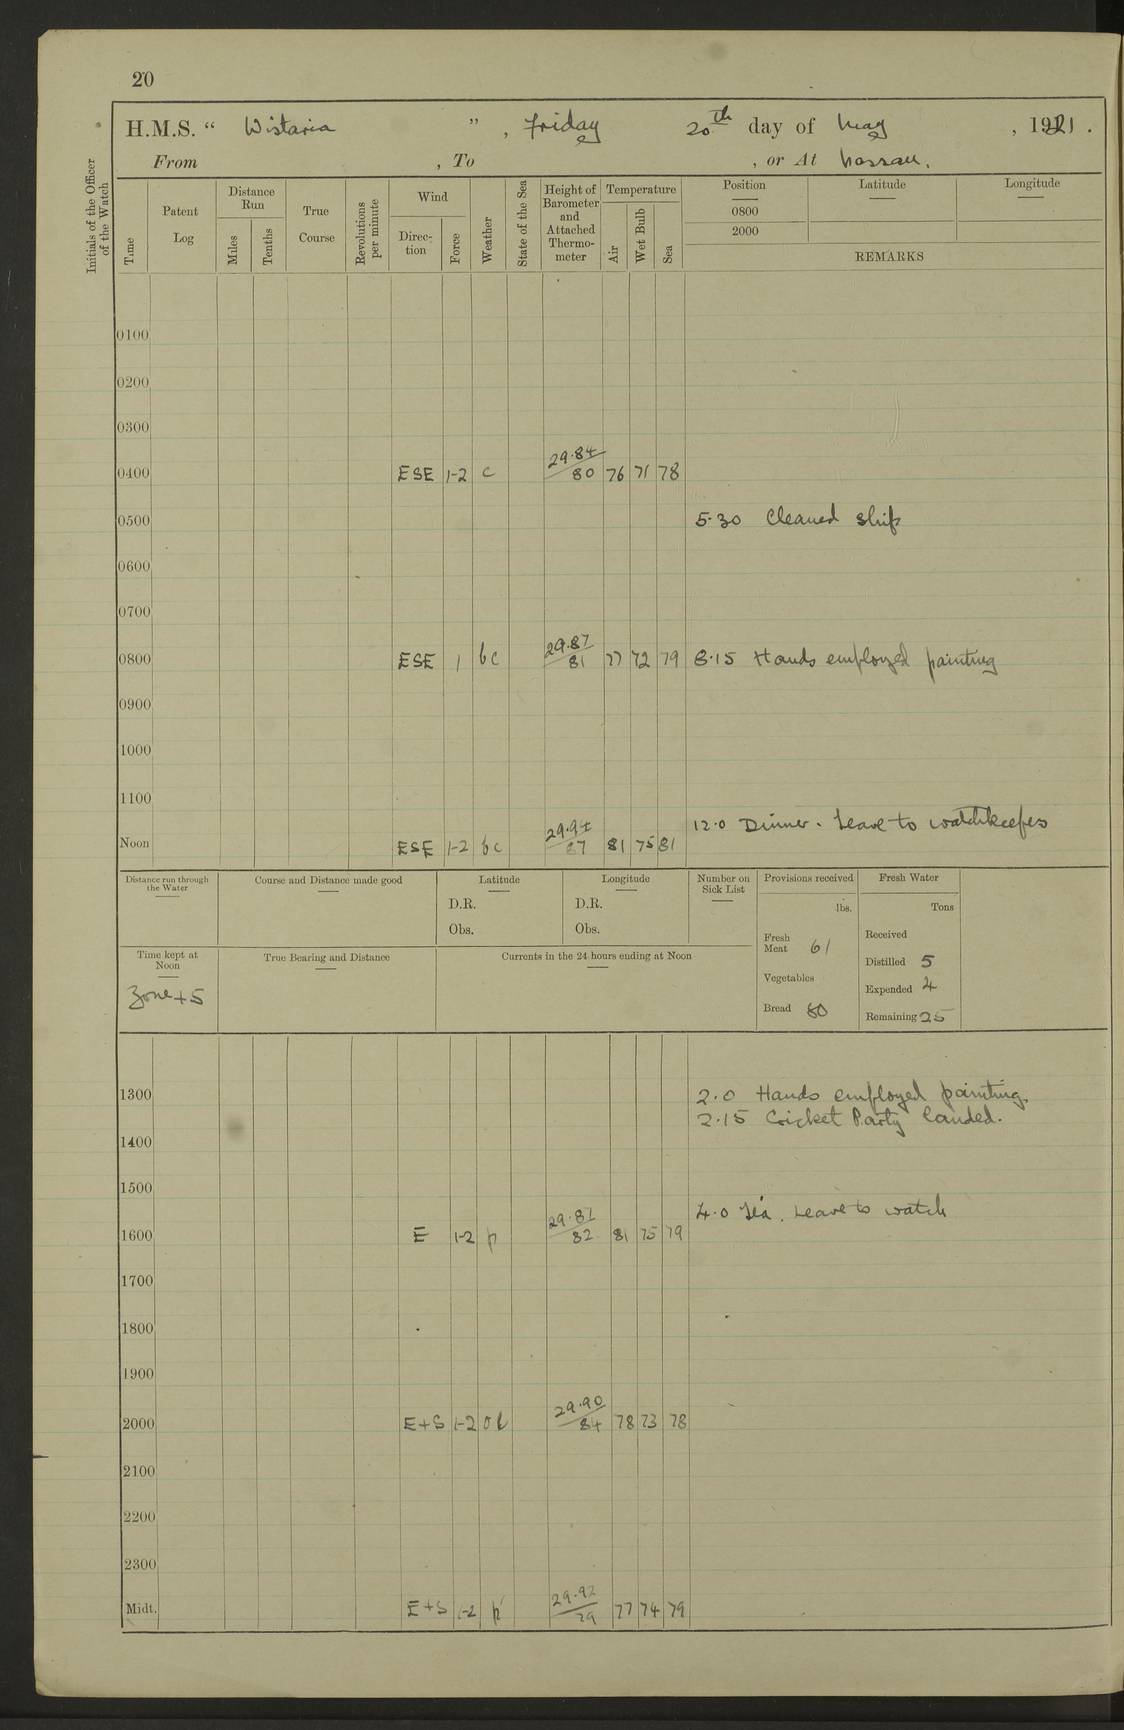 20
H.M.S. “ Wistaria ” , Friday 20th day of May , 1921 .
From , To , or At Nassau.
Initials of the Officer of the Watch
Time
Patent Log
Distance Run
Miles
Tenths
True Course
Revolutions per minute
Wind
Direc-tion
Force
Weather
State of the Sea
Height of Barometer and Attached Thermo-meter
Temperature
Air
Wet Bulb
Sea
Position
Latitude
Longitude
0800
2000
REMARKS
0100
0200
0300
0400 ESE 1-2 c 29.84/80 76 71 78
0500 5.30 Cleaned ship
0600
0700
0800 ESE 1 bc 29.87/81 77 72 79 8.15 Hands employed painting
0900
1000
1100
12.0 Dinner. Leave to watchkeepers
Noon ESE 1-2 bc 29.94/87 81 75 81
Distance run through the Water
Course and Distance made good
Latitude
D.R.
Obs.
Longitude
D.R.
Obs.
Number on Sick List
Provisions received
lbs.
Fresh Meat 61
Vegetables
Bread 80
Fresh Water
Tons
Received
Distilled 5
Expended 4
Remaining 25
Time kept at Noon
Zone +5
True Bearing and Distance
Currents in the 24 hours ending at Noon
1300 2.0 Hands employed painting.
2.15 Cricket Party landed.
1400
1500
4.0 Tea. Leave to watch
1600 E 1-2 p 29.87/82 81 75 79
1700
1800
1900
2000 E+S 1-2 ol 29.90/84 78 73 78
2100
2200
2300
Midt. E+S 1-2 p 29.92/79 77 74 79